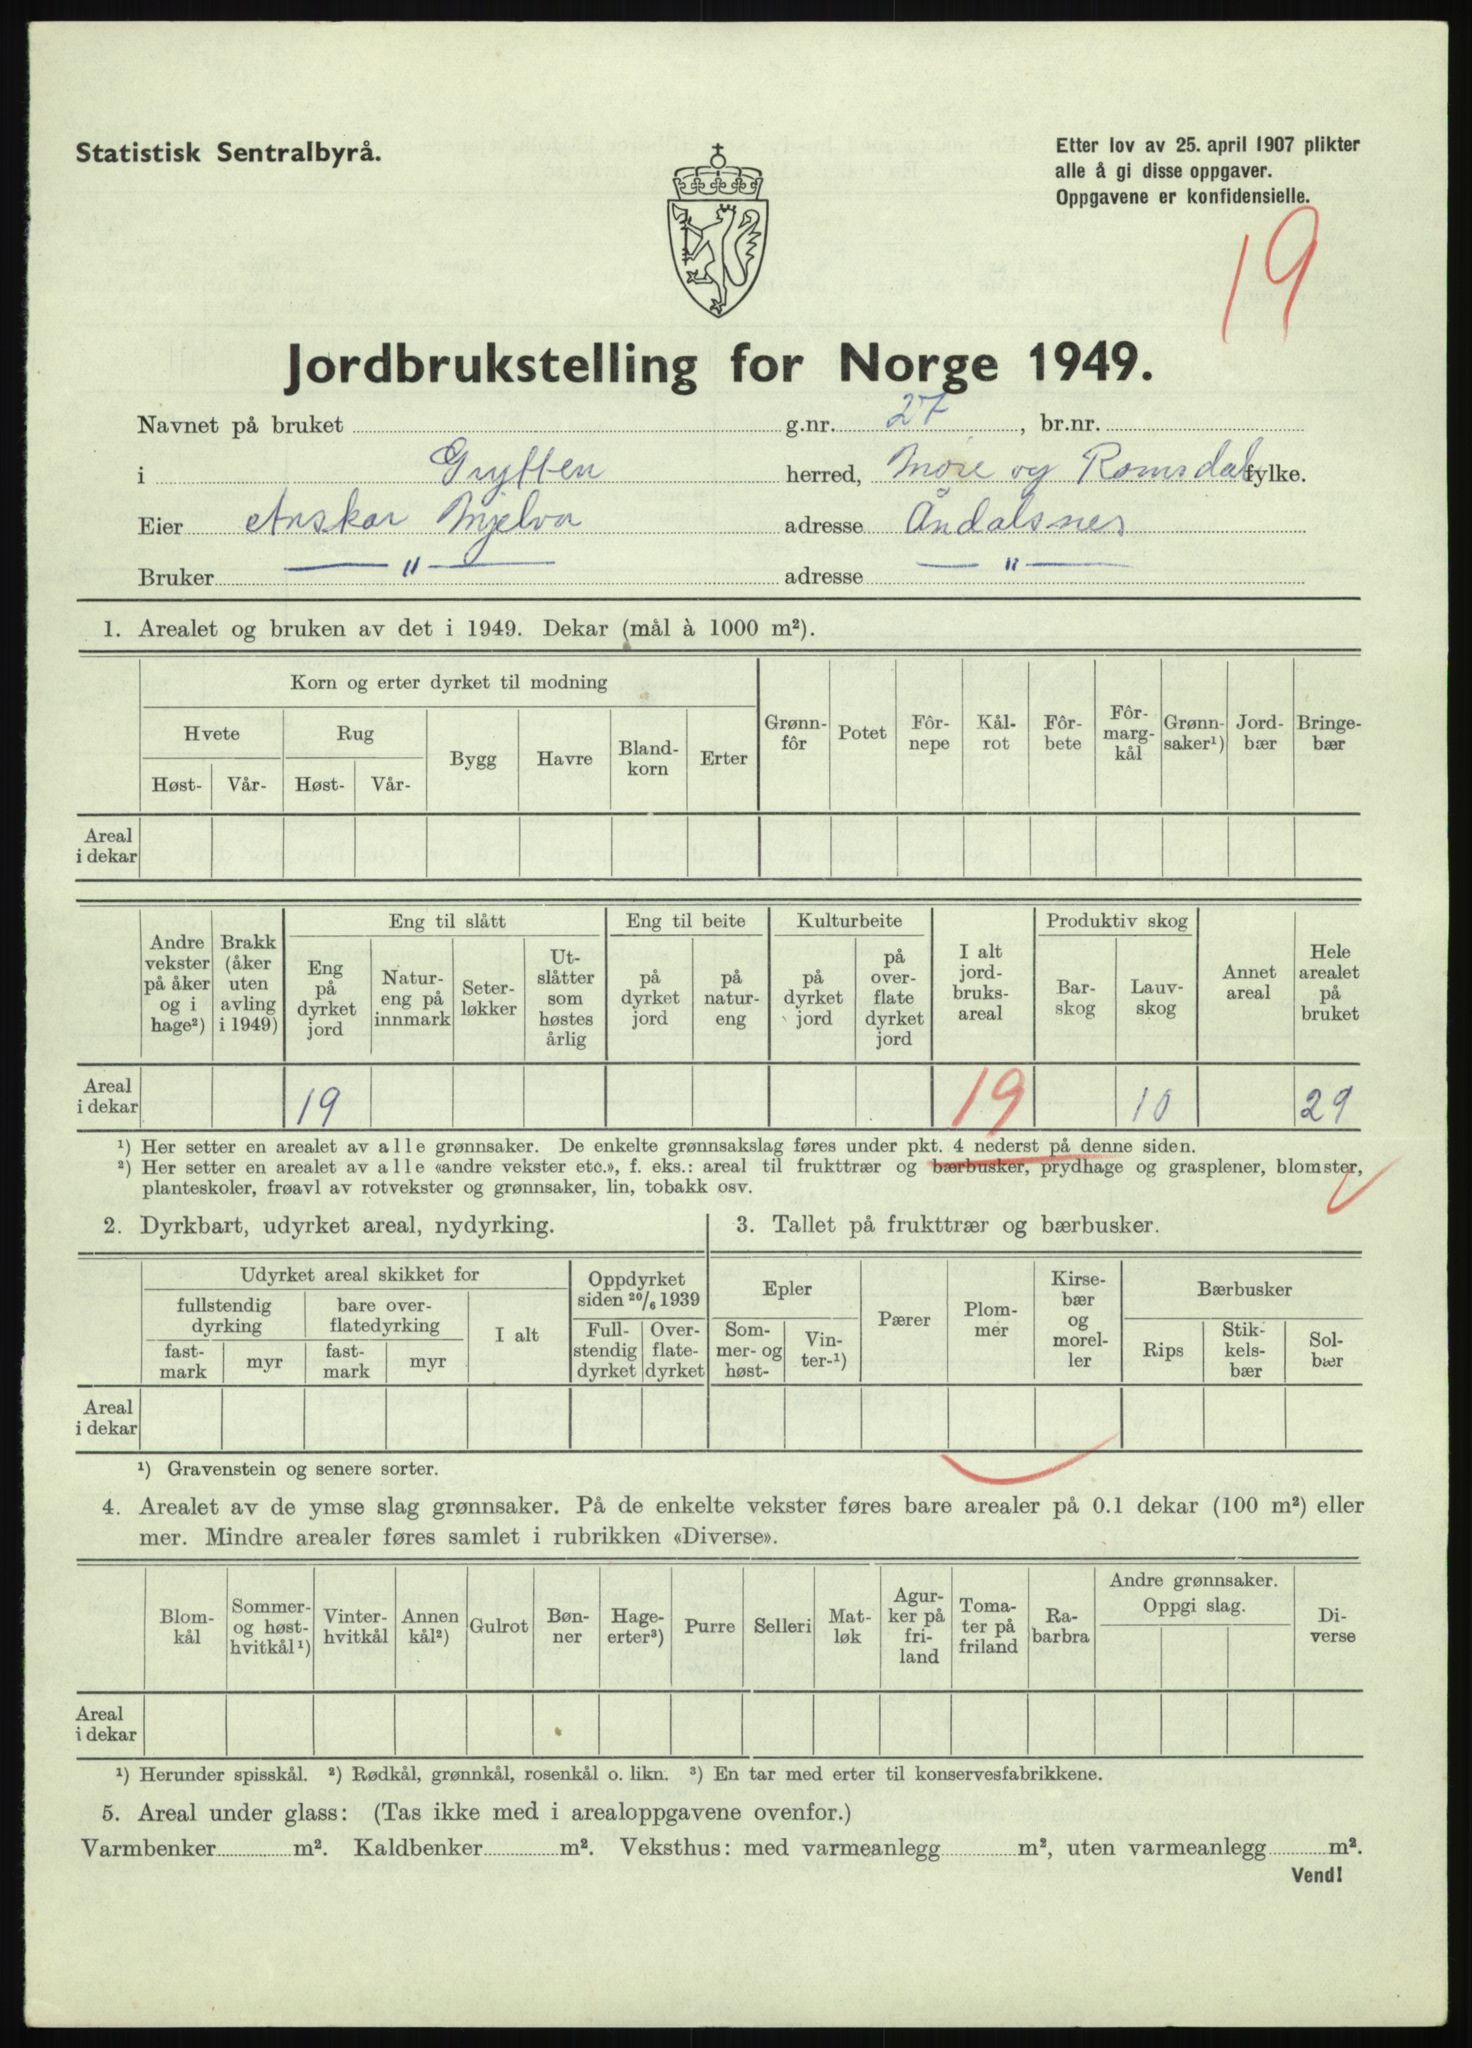 Statistisk Sentralbyrå.
Etter lov av 25. april 1907 plikter
alle å gi disse oppgaver.
Oppgavene er konfidensielle.
19
Jordbrukstelling for Norge 1949.
Navnet på bruket g.nr. 27, br.nr.
i Grytten herred, Møre og Romsdal fylke.
Eier Anskar Mjelva adresse Åndalsnes
Bruker — " — adresse — " —
1. Arealet og bruken av det i 1949. Dekar (mål à 1000 m²).
Korn og erter dyrket til modning
Hvete Rug Bygg Havre Bland-korn Erter Grønn-fôr Potet Fôr-nepe Kål-rot Fôr-bete Fôr-marg-kål Grønn-saker¹) Jord-bær Bringe-bær
Høst- Vår- Høst- Vår-
Areal
i dekar
Eng til slått Eng til beite Kulturbeite Produktiv skog
Andre vekster på åker og i hage²) Brakk (åker uten avling i 1949) Eng på dyrket jord Natur-eng på innmark Seter-løkker Ut-slåtter som høstes årlig på dyrket jord på natur-eng på dyrket jord på over-flate dyrket jord I alt jord-bruks-areal Bar-skog Lauv-skog Annet areal Hele arealet på bruket
Areal
i dekar 19 19 10 29
¹) Her setter en arealet av alle grønnsaker. De enkelte grønnsakslag føres under pkt. 4 nederst på denne siden.
²) Her setter en arealet av alle «andre vekster etc.», f. eks.: areal til frukttrær og bærbusker, prydhage og grasplener, blomster,
planteskoler, frøavl av rotvekster og grønnsaker, lin, tobakk osv.
2. Dyrkbart, udyrket areal, nydyrking.
Udyrket areal skikket for
fullstendig dyrking bare over-flatedyrking I alt Oppdyrket siden 20/6 1939
fast-mark myr fast-mark myr Full-stendig dyrket Over-flate-dyrket
Areal
i dekar
3. Tallet på frukttrær og bærbusker.
Epler Pærer Plom-mer Kirse-bær og morel-ler Bærbusker
Som-mer- og høst- Vin-ter-¹) Rips Stik-kels-bær Sol-bær
¹) Gravenstein og senere sorter.
4. Arealet av de ymse slag grønnsaker. På de enkelte vekster føres bare arealer på 0.1 dekar (100 m²) eller
mer. Mindre arealer føres samlet i rubrikken «Diverse».
Blom-kål Sommer- og høst-hvitkål¹) Vinter-hvitkål Annen kål²) Gulrot Bøn-ner Hage-erter³) Purre Selleri Mat-løk Agur-ker på fri-land Toma-ter på friland Ra-barbra Andre grønnsaker. Oppgi slag. Di-verse
Areal
i dekar
¹) Herunder spisskål. ²) Rødkål, grønnkål, rosenkål o. likn. ³) En tar med erter til konservesfabrikkene.
5. Areal under glass: (Tas ikke med i arealoppgavene ovenfor.)
Varmbenker m². Kaldbenker m². Veksthus: med varmeanlegg m², uten varmeanlegg m².
Vend!